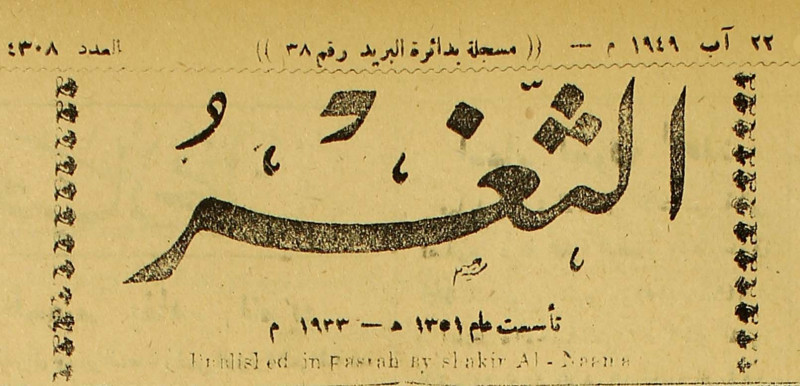 ٢٢ آب ١٩٤٩ م — (( مسجلة بدائرة البريد رقم ٣٨ )) العدد ٤٣٠٨
الثَّغْرُ
تأسست عام ١٣٥١ ه — ١٩٣٣ م
in Basrah by shakir Al-Naama